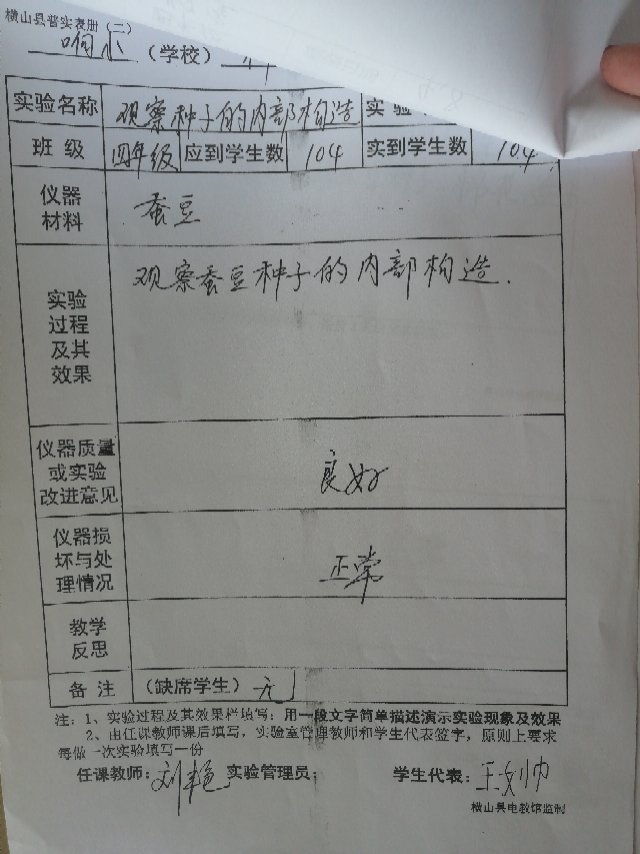 横山县普实表册（二）
响水（学校）
实验名称 观察种子的内部构造 实验
班 级 四年级 应到学生数 104 实到学生数 104
仪器材料 蚕豆
实验过程及其效果 观察蚕豆种子的内部构造.
仪器质量或实验改进意见 良好
仪器损坏与处理情况 正常
教学反思
备 注 （缺席学生）无
注：1、实验过程及其效果栏填写：用一段文字简单描述演示实验现象及效果
2、由任课教师课后填写，实验室管理教师和学生代表签字，原则上要求
每做一次实验填写一份
任课教师：刘艳 实验管理员： 学生代表：王刘帅
横山县电教馆监制